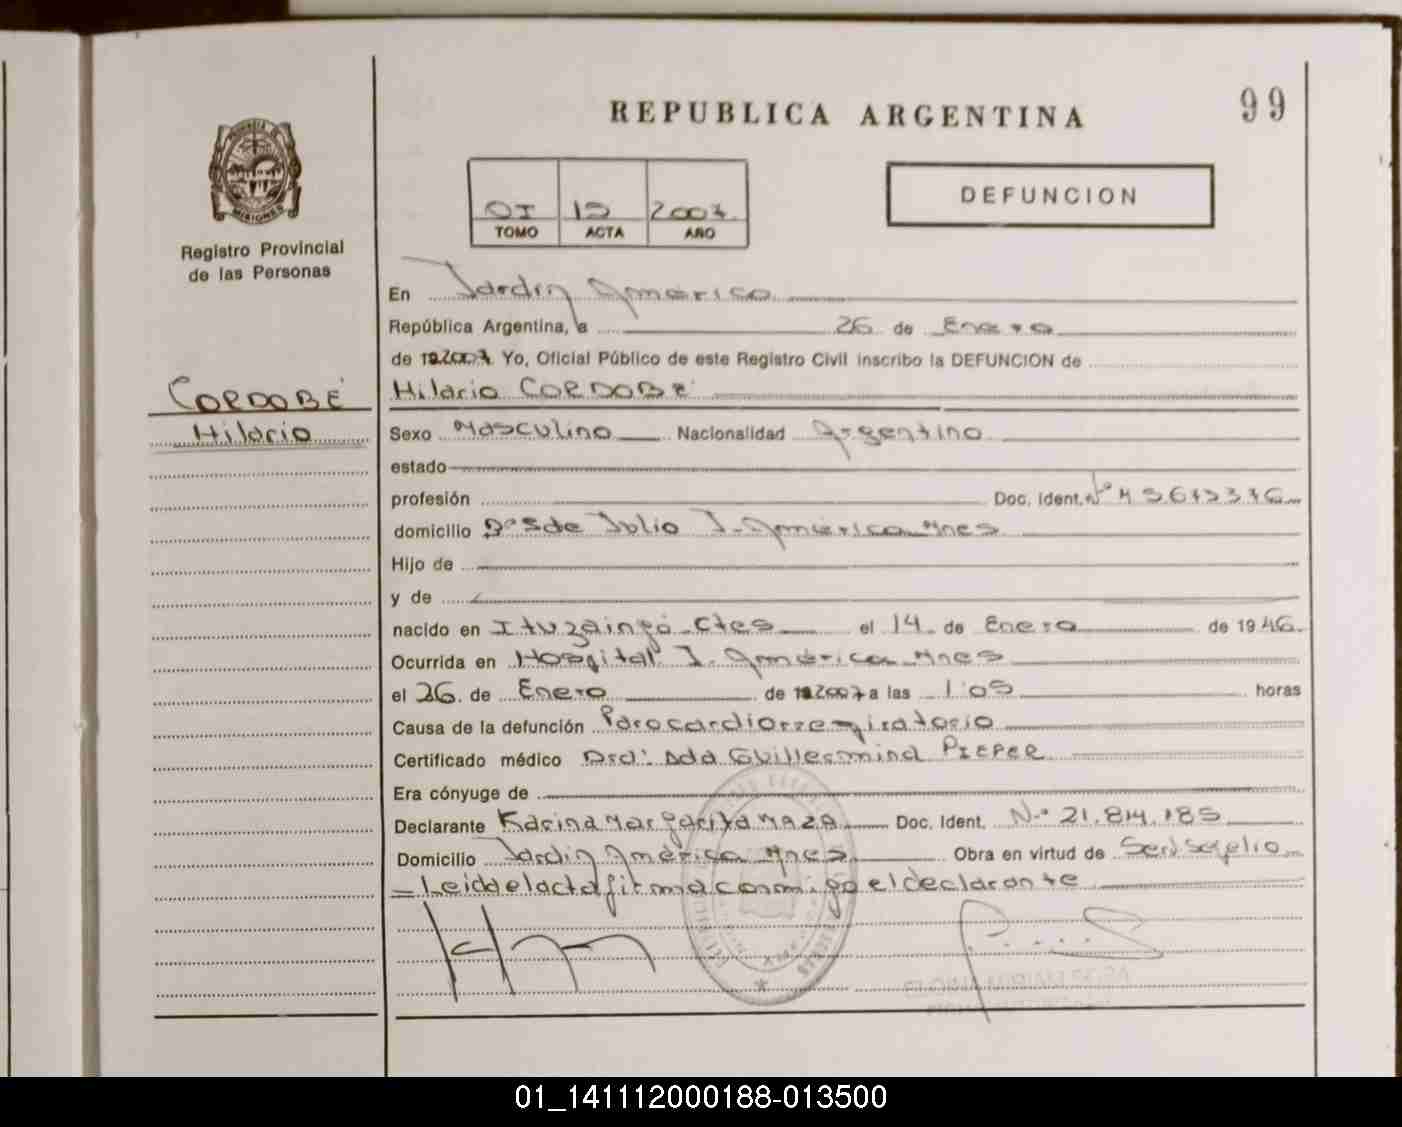 REPUBLICA ARGENTINA
99
PROVINCIA DE MISIONES
Registro Provincial
de las Personas
01 19 2007
TOMO ACTA AÑO
DEFUNCION
En Jardín América
República Argentina, a 26 de Enero
de 192007 Yo, Oficial Público de este Registro Civil inscribo la DEFUNCION de
Hilario CORDOBÉ
CORDOBÉ
Hilario
Sexo Masculino Nacionalidad Argentino
estado
profesión Doc. Ident. Nº M
domicilio Bº 9 de Julio J. América Mnes
Hijo de
y de
nacido en Ituzaingó Ctes el 14 de Enero de 1946
Ocurrida en Hospital J. América Mnes
el 26 de Enero de 192007 a las 1:05 horas
Causa de la defunción Parocardiorrespiratorio
Certificado médico Drª: Ada Guillermina PIEPER
Era cónyuge de
Declarante Karina Margarita MAZA Doc. Ident. Nº 21.814.185
Domicilio Jardín América Mnes Obra en virtud de Serv Sepelio
Leida el acta firma conmigo el declarante
01_141112000188-013500